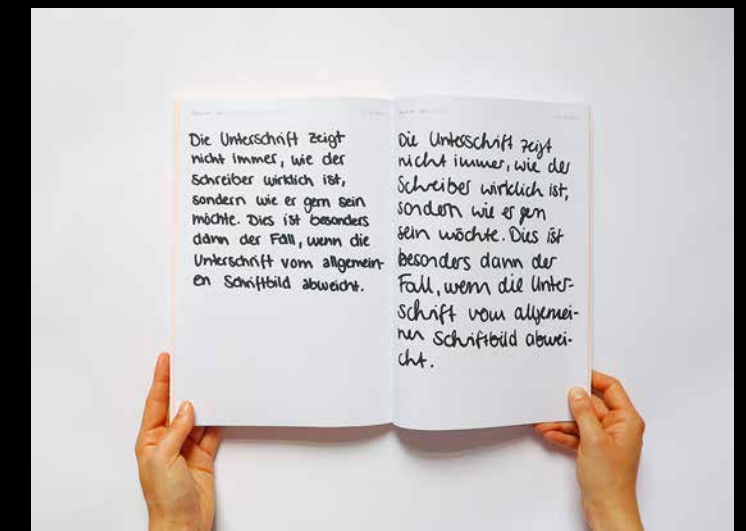 Die Unterschrift zeigt
nicht immer, wie der
Schreiber wirklich ist,
sondern wie er gern sein
möchte. Dies ist besonders
dann der Fall, wenn die
Unterschrift vom allgemein-
en Schriftbild abweicht.
Die Unterschrift zeigt
nicht immer, wie der
Schreiber wirklich ist,
sondern wie er gern
sein möchte. Dies ist
besonders dann der
Fall, wenn die Unter-
schrift vom allgemei-
nen Schriftbild abwei-
cht.